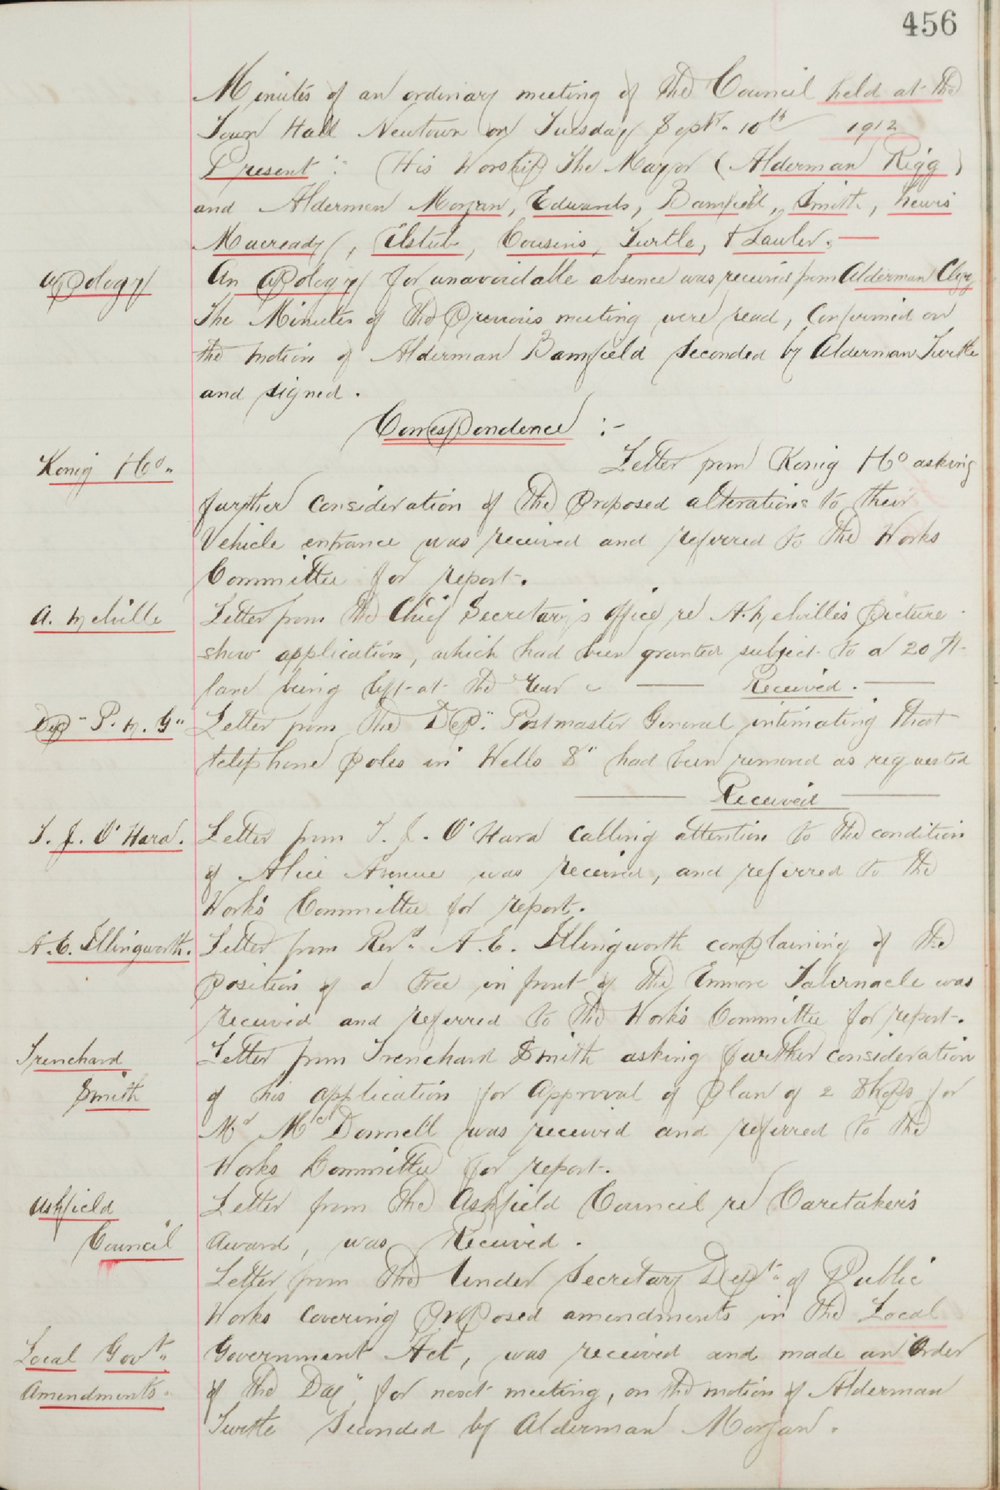 456
Minutes of an ordinary meeting of the Council held at the
Town Hall Newtown on Tuesday Septr. 10th 1912
Present :- (His Worship The Mayor (Alderman Rigg)
and Aldermen Morgan, Edwards, Bamfield, Smith, Lewis
Macready, Cousins, Turtle, & Lawler. —
Apology
An apology for unavoidable absence was received from Alderman
The Minutes of the Previous meeting were read, Confirmed on
the motion of Alderman Bamfield Seconded by Alderman Turtle
and signed.
Correspondence :-
Konig &Co..
Letter from Konig &Co asking
further consideration of the proposed alterations to their
Vehicle entrance was received and referred to the Works
Committee for report.
A. Melville
Letter from the Chief Secretary's Office re A. Melville's picture
show application, which had been granted subject to a 20 ft
lane being left at the Rear — Received. —
Dep" P. M. G"
Letter from the Dep". Postmaster General, intimating that
telephone poles in Wells S" had been removed as requested
— Received —
T. J. O'Hara.
Letter from T. J. O'Hara calling attention to the condition
of Alice Avenue was received, and referred to the
Works Committee for report.
A. E. Illingworth.
Letter from Revd. A. E. Illingworth complaining of the
position of a tree in front of the Enmore Tabernacle was
received and referred to the Works Committee for report.
Trenchard
Smith
Letter from Trenchard Smith asking further consideration
of his application for approval of Plan of 2 Shops for
Mr McDonnell was received and referred to the
Works Committee for report.
Ashfield
Council
Letter from the Ashfield Council re Caretaker's
Award, was Received.
Letter from the Under Secretary Dept. of Public
Works covering proposed amendments in the Local
Local Govt.
Amendments.
Government Act, was received and made an Order
of the Day" for next meeting, on the motion of Alderman
Turtle Seconded by Alderman Morgan.